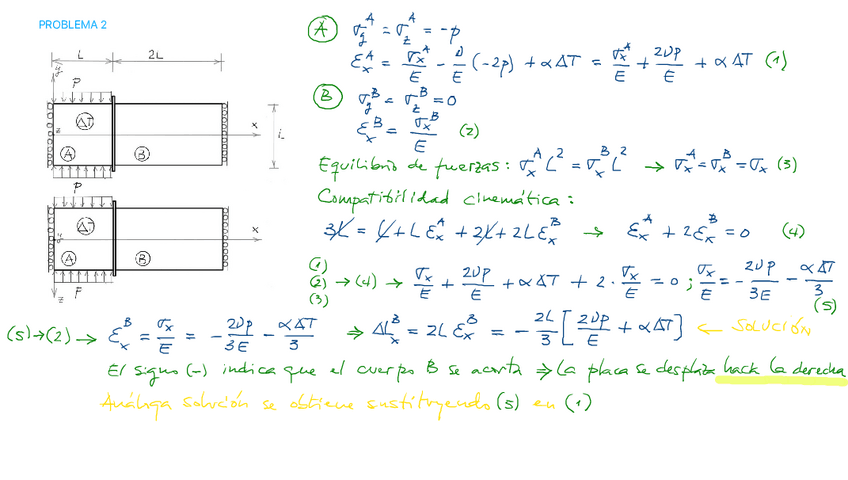 PROBLEMA 2
L 2L
y P
ΔT
z x L
A B
P
ΔT
y x
A B
z P
A σ_y^A = σ_z^A = -p
ε_x^A = σ_x^A/E - ν/E (-2p) + αΔT = σ_x^A/E + 2νp/E + αΔT (1)
B σ_y^B = σ_z^B = 0
ε_x^B = σ_x^B/E (2)
Equilibrio de fuerzas: σ_x^A L² = σ_x^B L² → σ_x^A = σ_x^B = σ_x (3)
Compatibilidad cinemática:
3L = L + L ε_x^A + 2L + 2L ε_x^B → ε_x^A + 2ε_x^B = 0 (4)
(1)
(2) → (4) → σ_x/E + 2νp/E + αΔT + 2·σ_x/E = 0 ; σ_x/E = -2νp/3E - αΔT/3
(3) (5)
(5)→(2) → ε_x^B = σ_x/E = -2νp/3E - αΔT/3 ⇒ ΔL_x^B = 2L ε_x^B = -2L/3 [2νp/E + αΔT] ← SOLUCIÓN
El signo (-) indica que el cuerpo B se acorta ⇒ La placa se desplaza hacia la derecha
Análoga solución se obtiene sustituyendo (5) en (1)